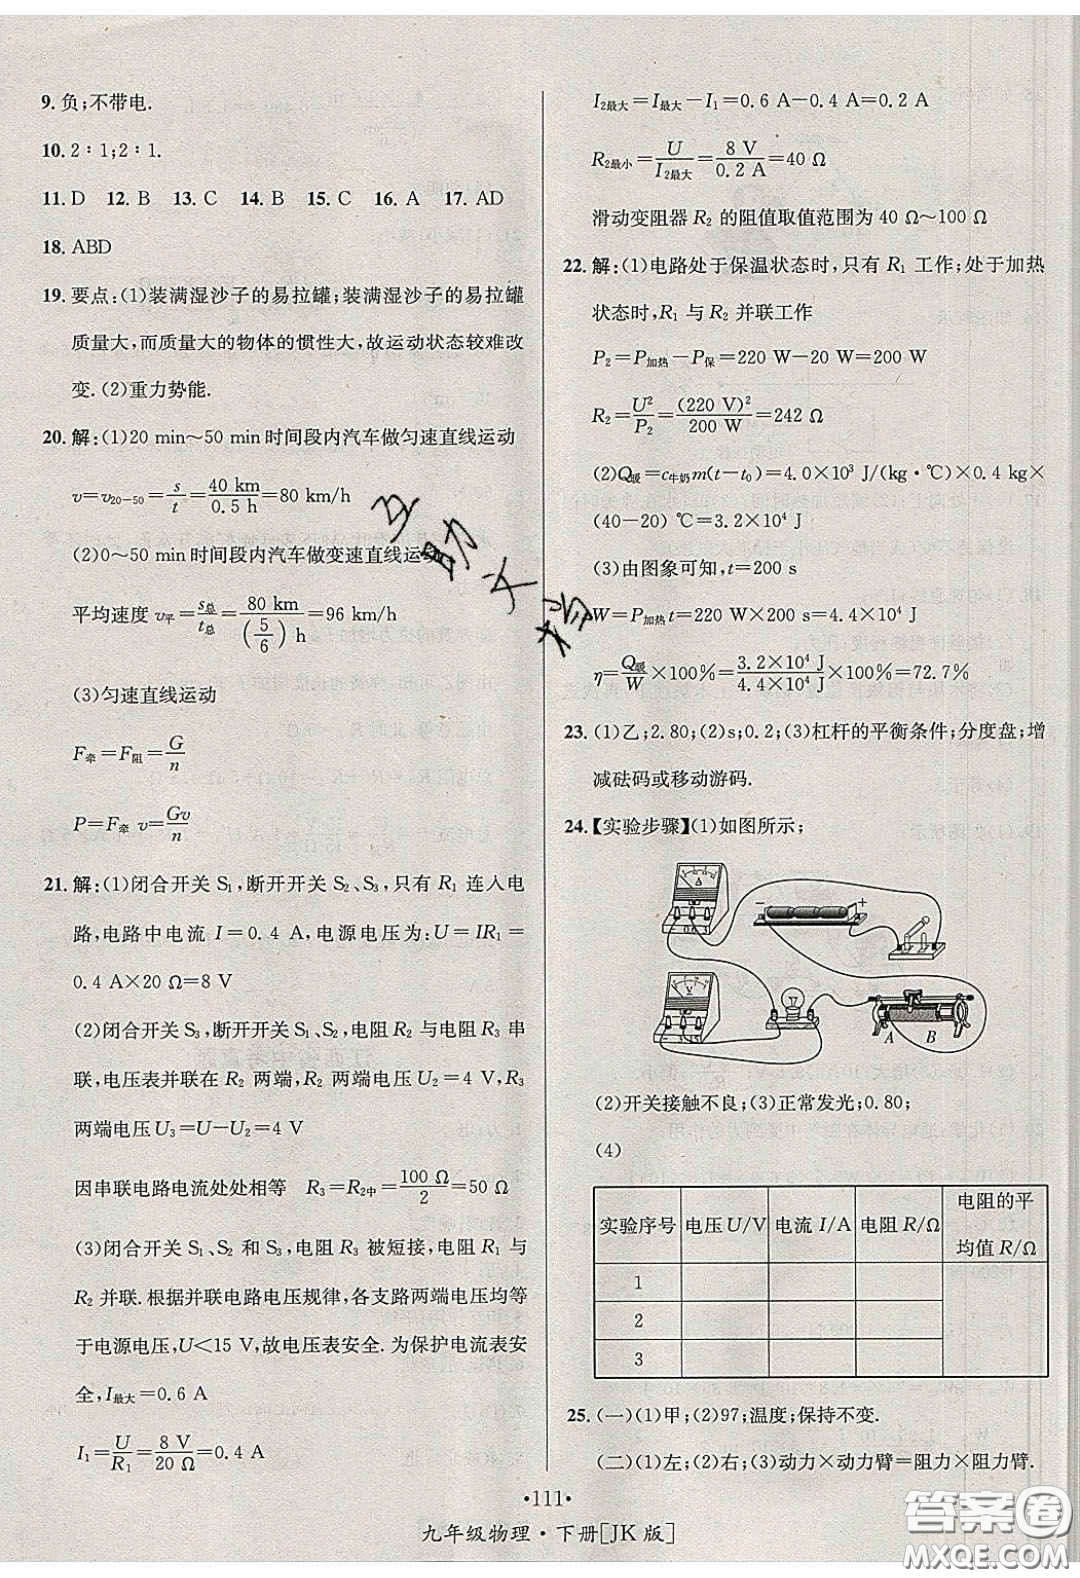 9. 负;不带电.
10. 2∶1;2∶1.
11. D 12. B 13. C 14. B 15. C 16. A 17. AD
18. ABD
19. 要点:(1)装满湿沙子的易拉罐;装满湿沙子的易拉罐
质量大,而质量大的物体的惯性大,故运动状态较难改
变.(2)重力势能.
20. 解:(1)20 min～50 min时间段内汽车做匀速直线运动
v=v₂₀₋₅₀=s/t=40 km/0.5 h=80 km/h
(2)0～50 min时间段内汽车做变速直线运动
平均速度 v平=s总/t总=80 km/(5/6) h=96 km/h
(3)匀速直线运动
F牵=F阻=G/n
P=F牵 v=Gv/n
21. 解:(1)闭合开关 S₁,断开开关 S₂、S₃,只有 R₁ 连入电
路,电路中电流 I=0.4 A,电源电压为:U=IR₁=
0.4 A×20 Ω=8 V
(2)闭合开关 S₃,断开开关 S₁、S₂,电阻 R₂ 与电阻 R₃ 串
联,电压表并联在 R₂ 两端,R₂ 两端电压 U₂=4 V,R₃
两端电压 U₃=U-U₂=4 V
因串联电路电流处处相等 R₃=R₂中=100 Ω/2=50 Ω
(3)闭合开关 S₁、S₂ 和 S₃,电阻 R₃ 被短接,电阻 R₁ 与
R₂ 并联.根据并联电路电压规律,各支路两端电压均等
于电源电压,U<15 V,故电压表安全.为保护电流表安
全,I最大=0.6 A
I₁=U/R₁=8 V/20 Ω=0.4 A
I₂最大=I最大-I₁=0.6 A-0.4 A=0.2 A
R₂最小=U/I₂最大=8 V/0.2 A=40 Ω
滑动变阻器 R₂ 的阻值取值范围为 40 Ω～100 Ω
22. 解:(1)电路处于保温状态时,只有 R₁ 工作;处于加热
状态时,R₁ 与 R₂ 并联工作
P₂=P加热-P保=220 W-20 W=200 W
R₂=U²/P₂=(220 V)²/200 W=242 Ω
(2)Q吸=c牛奶m(t-t₀)=4.0×10³ J/(kg·℃)×0.4 kg×
(40-20) ℃=3.2×10⁴ J
(3)由图象可知,t=200 s
W=P加热t=220 W×200 s=4.4×10⁴ J
η=Q吸/W×100%=3.2×10⁴ J/4.4×10⁴ J×100%=72.7%
23. (1)乙;2.80;(2)s;0.2;(3)杠杆的平衡条件;分度盘;增
减砝码或移动游码.
24. 【实验步骤】(1)如图所示;
A
V
- +
A B
(2)开关接触不良;(3)正常发光;0.80;
(4)
实验序号 电压U/V 电流I/A 电阻R/Ω 电阻的平
均值R/Ω
1
2
3
25. (一)(1)甲;(2)97;温度;保持不变.
(二)(1)左;(2)右;(3)动力×动力臂=阻力×阻力臂.
·111·
九年级物理·下册[JK版]
互助文档
答案圈
MXQE.COM